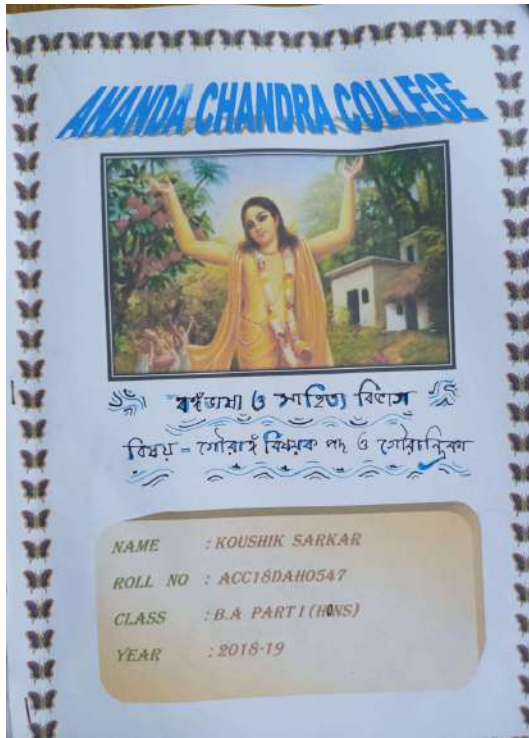 ANANDA CHANDRA COLLEGE
বঙ্গভাষা ও সাহিত্য বিভাগ
বিষয় = গৌরাঙ্গ বিষয়ক পদ ও গৌরচন্দ্রিকা
NAME : KOUSHIK SARKAR
ROLL NO : ACC18DAH0547
CLASS : B.A PART I (HONS)
YEAR : 2018-19